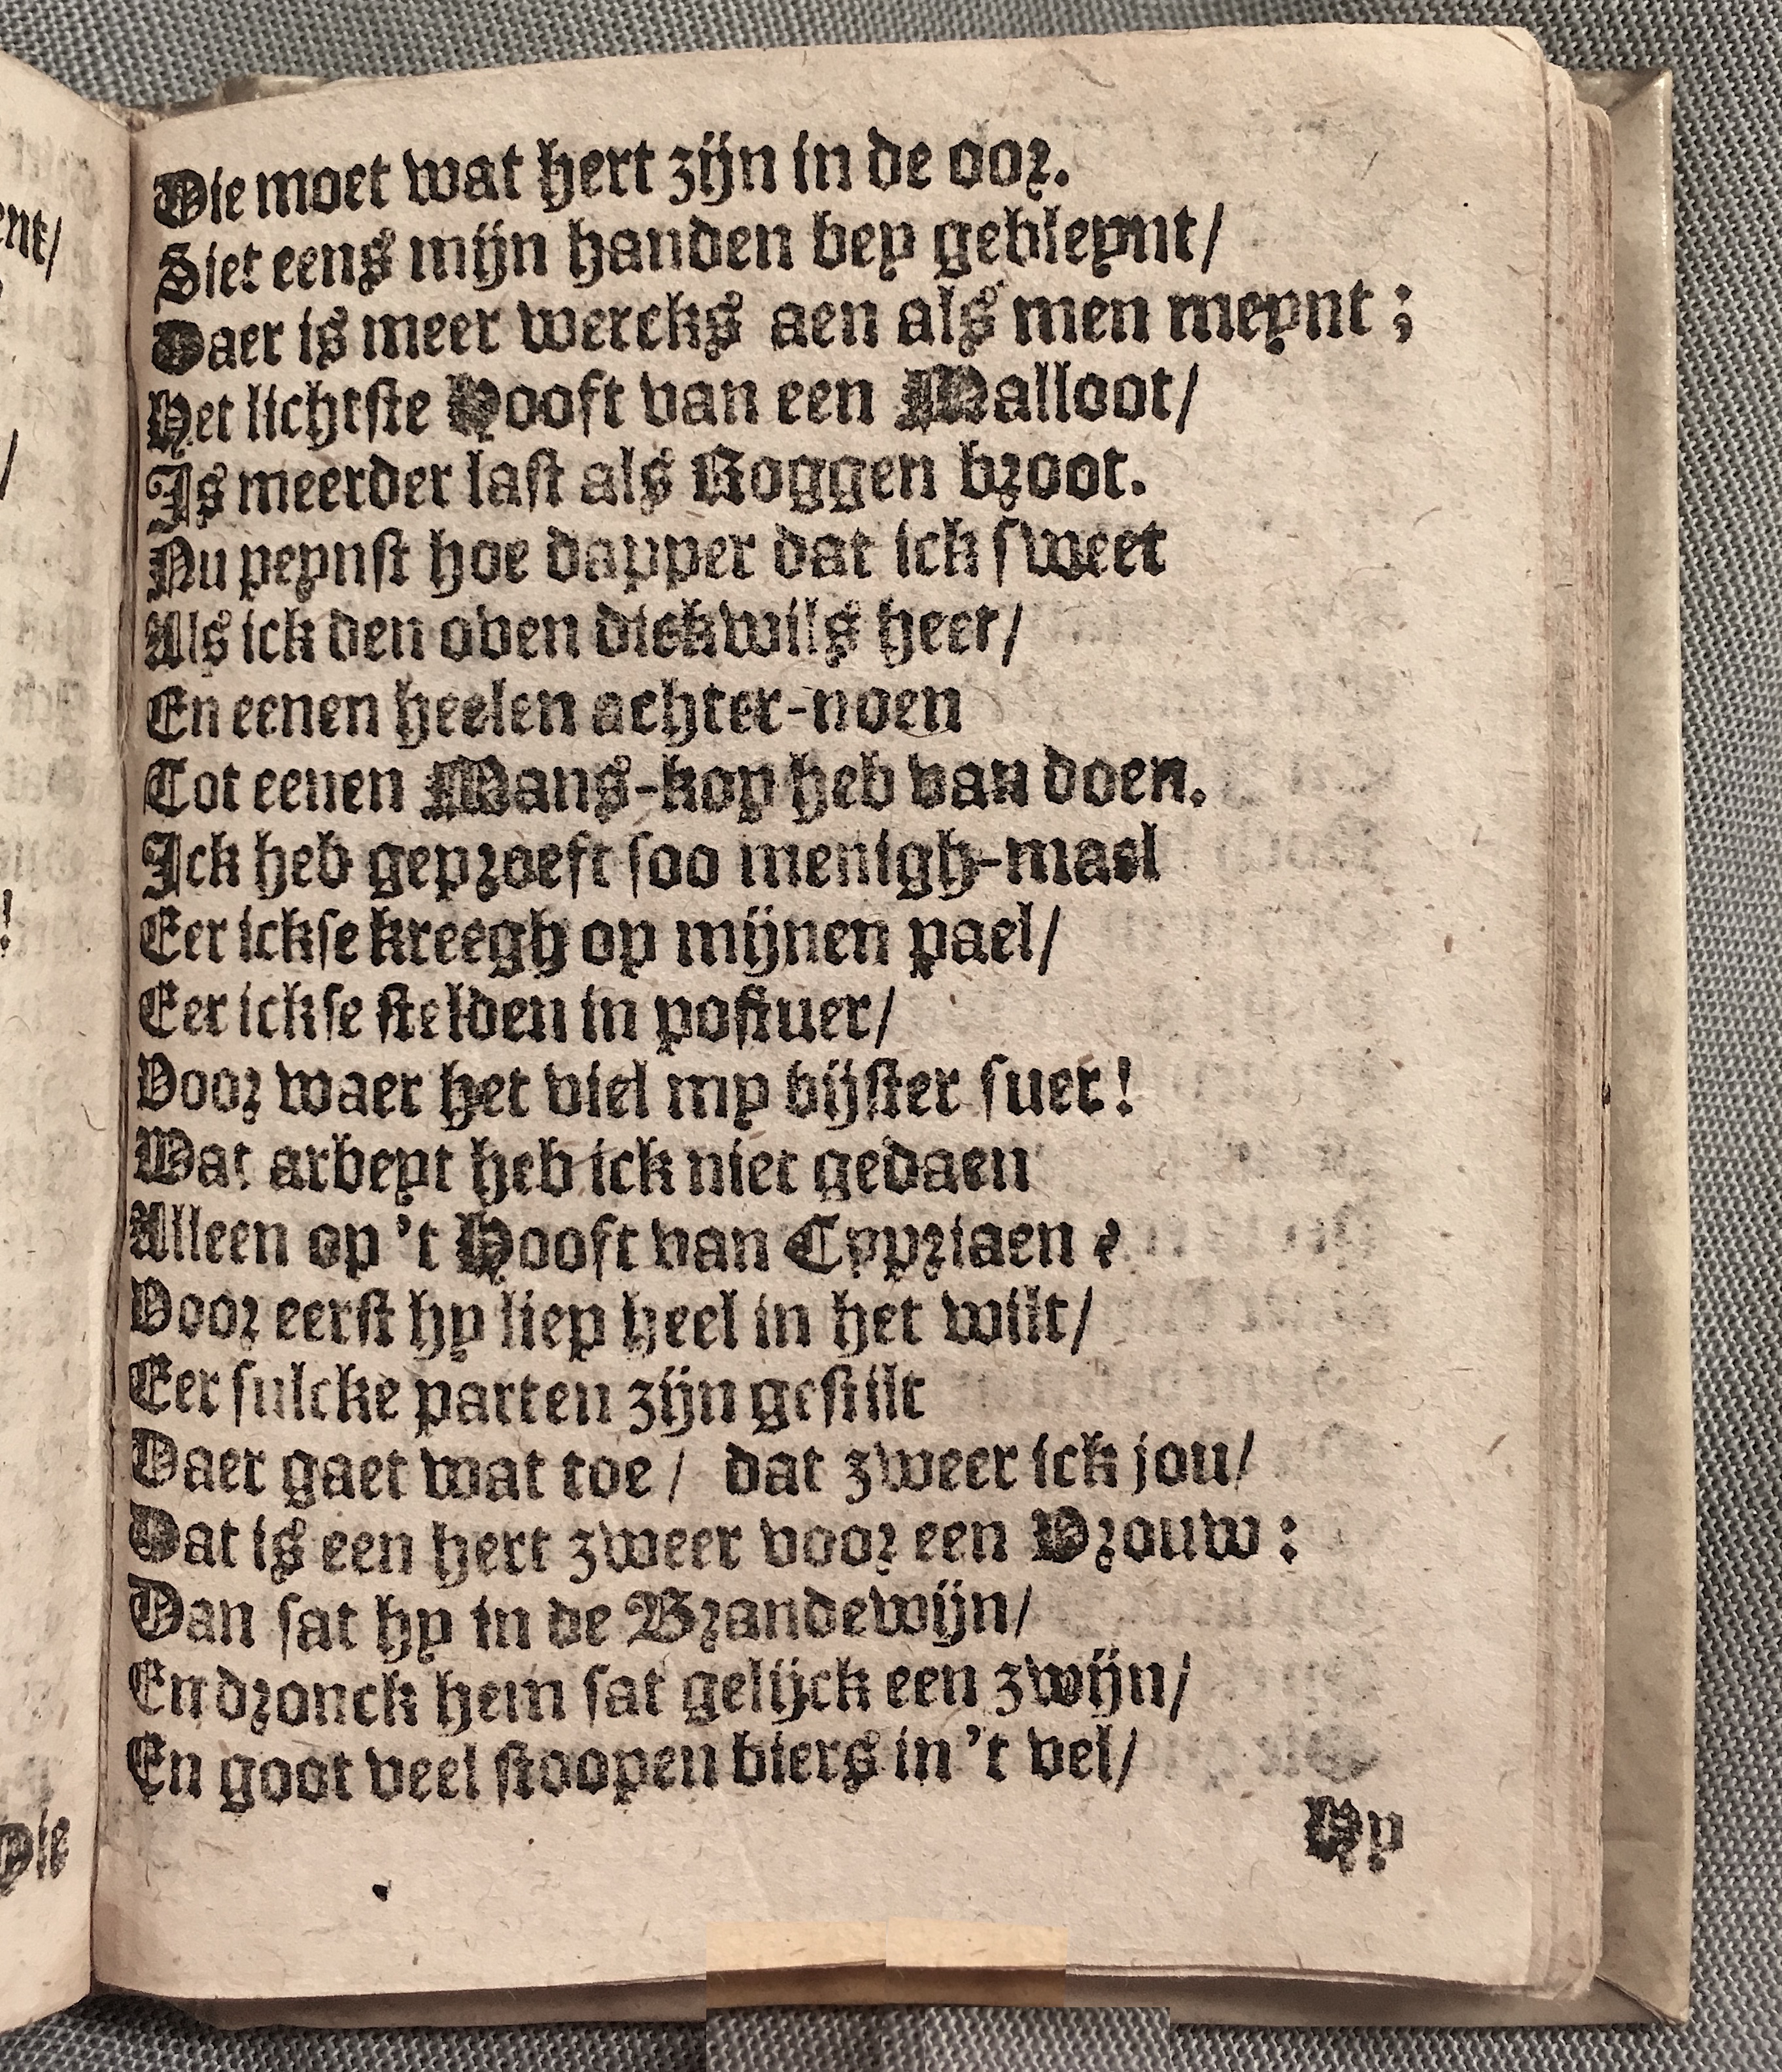 Die moet wat hert zijn in de oor.
Siet eens mijn handen bey gebleynt/
Daer is meer wercks aen als men meynt;
Het lichtste Hooft van een Malloot/
Is meerder last als Roggen broot.
Nu peynst hoe dapper dat ick sweet
Als ick den oven dickwils heet/
En eenen heelen achter-noen
Tot eenen Mans-kop heb van doen.
Ick heb geproeft soo menigh-mael
Eer ickse kreegh op mijnen pael/
Eer ickse stelden in postuer/
Voor waer het viel my bijster suer!
Wat arbeyt heb ick niet gedaen
Alleen op 't Hooft van Cypriaen?
Voor eerst hy liep heel in het wilt/
Eer sulcke parten zijn gestilt
Daer gaet wat toe/ dat zweer ick jou/
Dat is een hert zweer voor een Vrouw:
Dan sat hy in de Brandewijn/
En dronck hem sat gelijck een zwijn/
En goot veel stoopen biers in 't vel/
Hy
Die